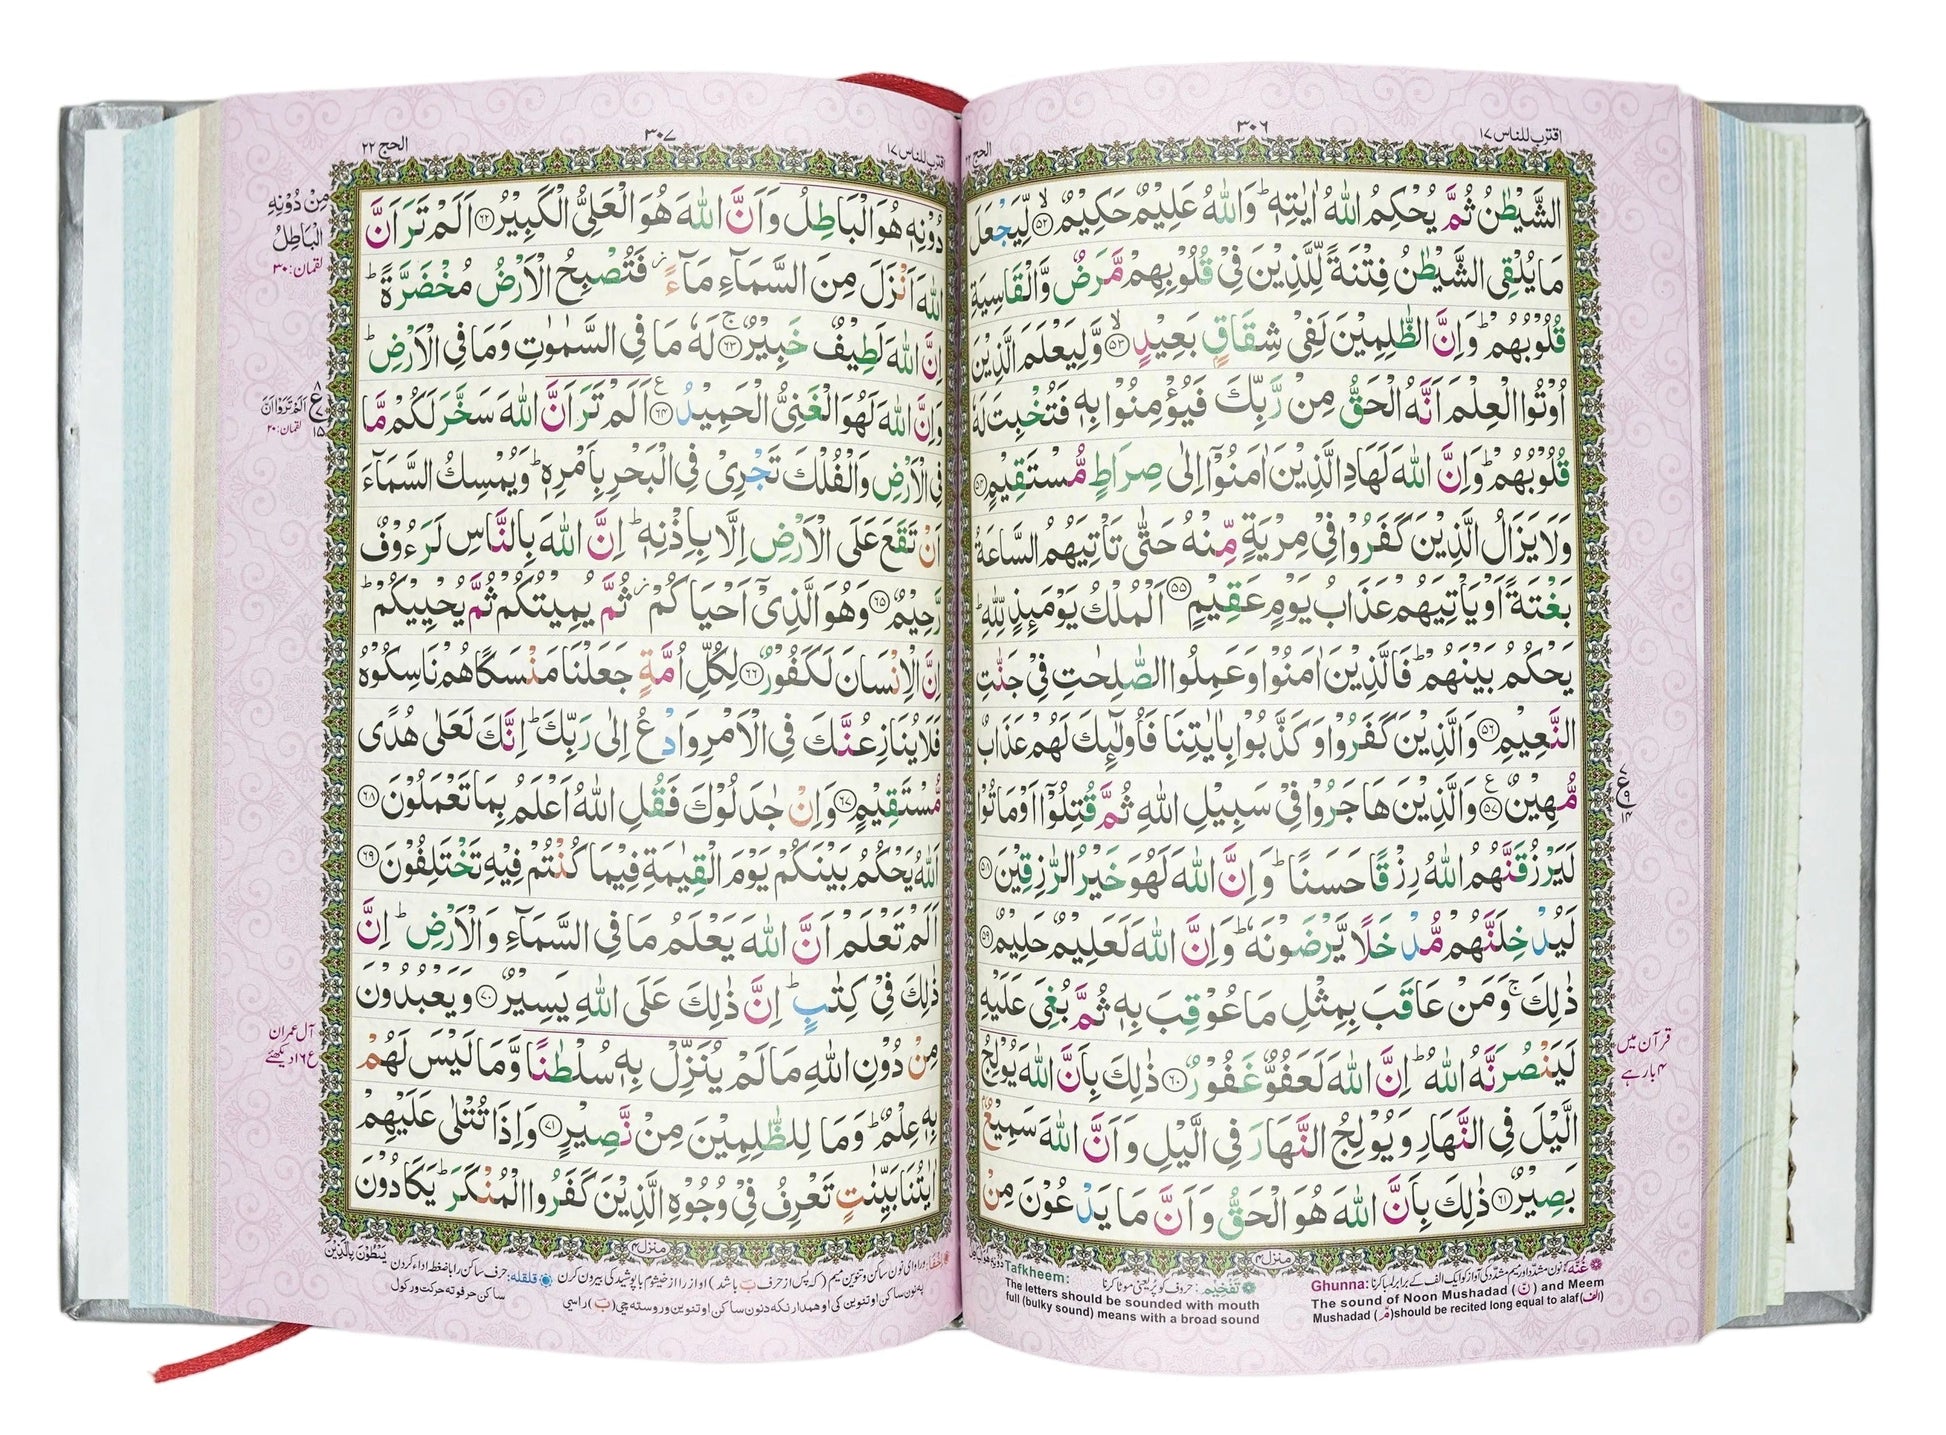 اقترب للناس ۱۷
۳۰۶
الحج ۲۲
الشَّيْطٰنُ ثُمَّ يُحْكِمُ اللّٰهُ اٰيٰتِهٖ ؕ وَاللّٰهُ عَلِيْمٌ حَكِيْمٌ ۙ‏﴿۵۲﴾ لِّيَجْعَلَ
مَا يُلْقِى الشَّيْطٰنُ فِتْنَةً لِّلَّذِيْنَ فِىْ قُلُوْبِهِمْ مَّرَضٌ وَّالْقَاسِيَةِ
قُلُوْبُهُمْ ؕ وَاِنَّ الظّٰلِمِيْنَ لَفِىْ شِقَاقٍۭ بَعِيْدٍ ۙ‏﴿۵۳﴾ وَّلِيَعْلَمَ الَّذِيْنَ
اُوْتُوا الْعِلْمَ اَنَّهُ الْحَقُّ مِنْ رَّبِّكَ فَيُؤْمِنُوْا بِهٖ فَتُخْبِتَ لَهٗ
قُلُوْبُهُمْ ؕ وَاِنَّ اللّٰهَ لَهَادِ الَّذِيْنَ اٰمَنُوْۤا اِلٰى صِرَاطٍ مُّسْتَقِيْمٍ ﴿۵۴﴾
وَلَا يَزَالُ الَّذِيْنَ كَفَرُوْا فِىْ مِرْيَةٍ مِّنْهُ حَتّٰى تَاْتِيَهُمُ السَّاعَةُ
بَغْتَةً اَوْ يَاْتِيَهُمْ عَذَابُ يَوْمٍ عَقِيْمٍ ﴿۵۵﴾ اَلْمُلْكُ يَوْمَئِذٍ لِّلّٰهِ ؕ
يَحْكُمُ بَيْنَهُمْ ؕ فَالَّذِيْنَ اٰمَنُوْا وَعَمِلُوا الصّٰلِحٰتِ فِىْ جَنّٰتِ
النَّعِيْمِ ﴿۵۶﴾ وَالَّذِيْنَ كَفَرُوْا وَكَذَّبُوْا بِاٰيٰتِنَا فَاُولٰٓئِكَ لَهُمْ عَذَابٌ
مُّهِيْنٌ ﴿۵۷﴾ وَالَّذِيْنَ هَاجَرُوْا فِىْ سَبِيْلِ اللّٰهِ ثُمَّ قُتِلُوْۤا اَوْ مَاتُوْا
لَيَرْزُقَنَّهُمُ اللّٰهُ رِزْقًا حَسَنًا ؕ وَاِنَّ اللّٰهَ لَهُوَ خَيْرُ الرّٰزِقِيْنَ ﴿۵۸﴾
لَيُدْخِلَنَّهُمْ مُّدْخَلًا يَّرْضَوْنَهٗ ؕ وَاِنَّ اللّٰهَ لَعَلِيْمٌ حَلِيْمٌ ﴿۵۹﴾
ذٰلِكَ ۚ وَمَنْ عَاقَبَ بِمِثْلِ مَا عُوْقِبَ بِهٖ ثُمَّ بُغِىَ عَلَيْهِ
لَيَنْصُرَنَّهُ اللّٰهُ ؕ اِنَّ اللّٰهَ لَعَفُوٌّ غَفُوْرٌ ﴿۶۰﴾ ذٰلِكَ بِاَنَّ اللّٰهَ يُوْلِجُ
الَّيْلَ فِى النَّهَارِ وَيُوْلِجُ النَّهَارَ فِى الَّيْلِ وَاَنَّ اللّٰهَ سَمِيْعٌۢ
بَصِيْرٌ ﴿۶۱﴾ ذٰلِكَ بِاَنَّ اللّٰهَ هُوَ الْحَقُّ وَاَنَّ مَا يَدْعُوْنَ مِنْ
منزل ۴
ع ۹ ۱۴
قرآن میں
۴ بار ہے
غُنّه: نون مشدّد اور میم مشدّد کی آواز کو ایک الف کے برابر لمبا کرنا
Ghunna:
The sound of Noon Mushadad (نّ) and Meem
Mushadad (مّ)should be recited long equal to alaf(الف)
تَفْخِیْم: حروف کو پُر یعنی موٹا کرنا
Tafkheem:
The letters should be sounded with mouth
full (bulky sound) means with a broad sound
اقترب للناس ۱۷
۳۰۷
الحج ۲۲
دُوْنِهٖ هُوَ الْبَاطِلُ وَاَنَّ اللّٰهَ هُوَ الْعَلِىُّ الْكَبِيْرُ ﴿۶۲﴾ اَلَمْ تَرَ اَنَّ
اللّٰهَ اَنْزَلَ مِنَ السَّمَآءِ مَآءً فَتُصْبِحُ الْاَرْضُ مُخْضَرَّةً ؕ
اِنَّ اللّٰهَ لَطِيْفٌ خَبِيْرٌ ۚ‏﴿۶۳﴾ لَهٗ مَا فِى السَّمٰوٰتِ وَمَا فِى الْاَرْضِ ؕ
وَاِنَّ اللّٰهَ لَهُوَ الْغَنِىُّ الْحَمِيْدُ ﴿۶۴﴾ اَلَمْ تَرَ اَنَّ اللّٰهَ سَخَّرَ لَكُمْ مَّا
فِى الْاَرْضِ وَالْفُلْكَ تَجْرِىْ فِى الْبَحْرِ بِاَمْرِهٖ ؕ وَيُمْسِكُ السَّمَآءَ
اَنْ تَقَعَ عَلَى الْاَرْضِ اِلَّا بِاِذْنِهٖ ؕ اِنَّ اللّٰهَ بِالنَّاسِ لَرَءُوْفٌ
رَّحِيْمٌ ﴿۶۵﴾ وَهُوَ الَّذِىْۤ اَحْيَاكُمْ ثُمَّ يُمِيْتُكُمْ ثُمَّ يُحْيِيْكُمْ ؕ
اِنَّ الْاِنْسَانَ لَكَفُوْرٌ ﴿۶۶﴾ لِكُلِّ اُمَّةٍ جَعَلْنَا مَنْسَكًا هُمْ نَاسِكُوْهُ
فَلَا يُنَازِعُنَّكَ فِى الْاَمْرِ وَادْعُ اِلٰى رَبِّكَ ؕ اِنَّكَ لَعَلٰى هُدًى
مُّسْتَقِيْمٍ ﴿۶۷﴾ وَاِنْ جٰدَلُوْكَ فَقُلِ اللّٰهُ اَعْلَمُ بِمَا تَعْمَلُوْنَ ﴿۶۸﴾
اَللّٰهُ يَحْكُمُ بَيْنَكُمْ يَوْمَ الْقِيٰمَةِ فِيْمَا كُنْتُمْ فِيْهِ تَخْتَلِفُوْنَ ﴿۶۹﴾
اَلَمْ تَعْلَمْ اَنَّ اللّٰهَ يَعْلَمُ مَا فِى السَّمَآءِ وَالْاَرْضِ ؕ اِنَّ
ذٰلِكَ فِىْ كِتٰبٍ ؕ اِنَّ ذٰلِكَ عَلَى اللّٰهِ يَسِيْرٌ ﴿۷۰﴾ وَيَعْبُدُوْنَ
مِنْ دُوْنِ اللّٰهِ مَا لَمْ يُنَزِّلْ بِهٖ سُلْطٰنًا وَّمَا لَيْسَ لَهُمْ
بِهٖ عِلْمٌ ؕ وَمَا لِلظّٰلِمِيْنَ مِنْ نَّصِيْرٍ ﴿۷۱﴾ وَاِذَا تُتْلٰى عَلَيْهِمْ
اٰيٰتُنَا بَيِّنٰتٍ تَعْرِفُ فِىْ وُجُوْهِ الَّذِيْنَ كَفَرُوا الْمُنْكَرَ ؕ يَكَادُوْنَ
منزل ۴
يَسْطُوْنَ بِالَّذِيْنَ
مِنْ دُوْنِهِ
الْبَاطِلُ
لقمان: ۳۰
ع ۸ ۱۵
اَلَمْ تَرَوْا اَنَّ
لقمان: ۲۰
آل عمران
ع ۱۶ دیکھئے
قلقله: حرف ساکن را با ضغط ادا کردن